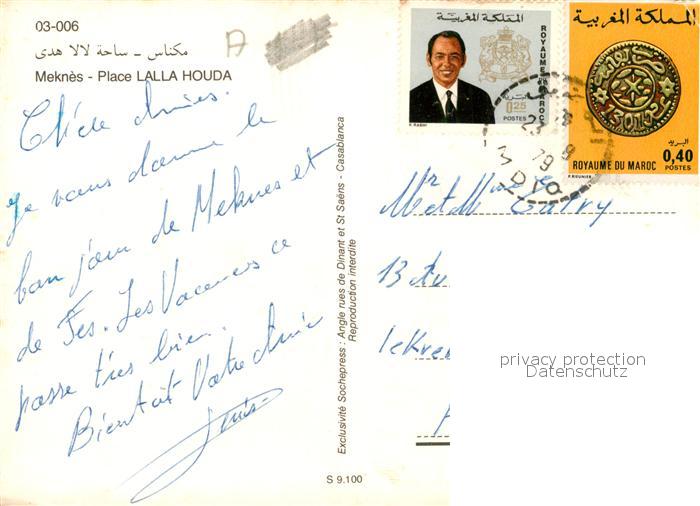 03-006
مكناس - ساحة لالا هدى
Meknès - Place LALLA HOUDA
A
Chère Amies.
Je vous donne le
bon jour de Meknes et
de Fes. Les Vacances ce
passe très bien.
Bientôt Votre Amie
Exclusivité Sochepress : Angle rues de Dinant et St Saëns - Casablanca
Reproduction interdite
S 9.100
المملكة المغربية
ROYAUME DU MAROC
0,25
POSTES
المملكة المغربية
البريد
0,40
POSTES
ROYAUME DU MAROC
23
79
Mr et Mme
13 Av
le Kre
privacy protection
Datenschutz